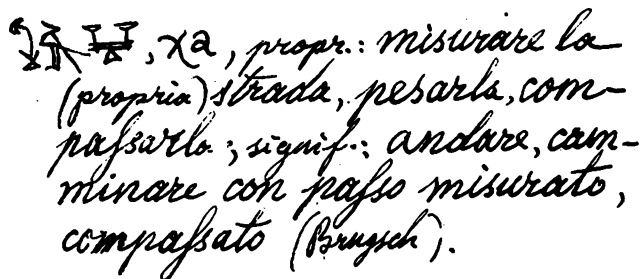 , χa, propr.: misurare la
(propria) strada, pesarla, com-
paſsarla; signif.: andare, cam-
minare con paſso misurato,
compaſsato (Brugsch).